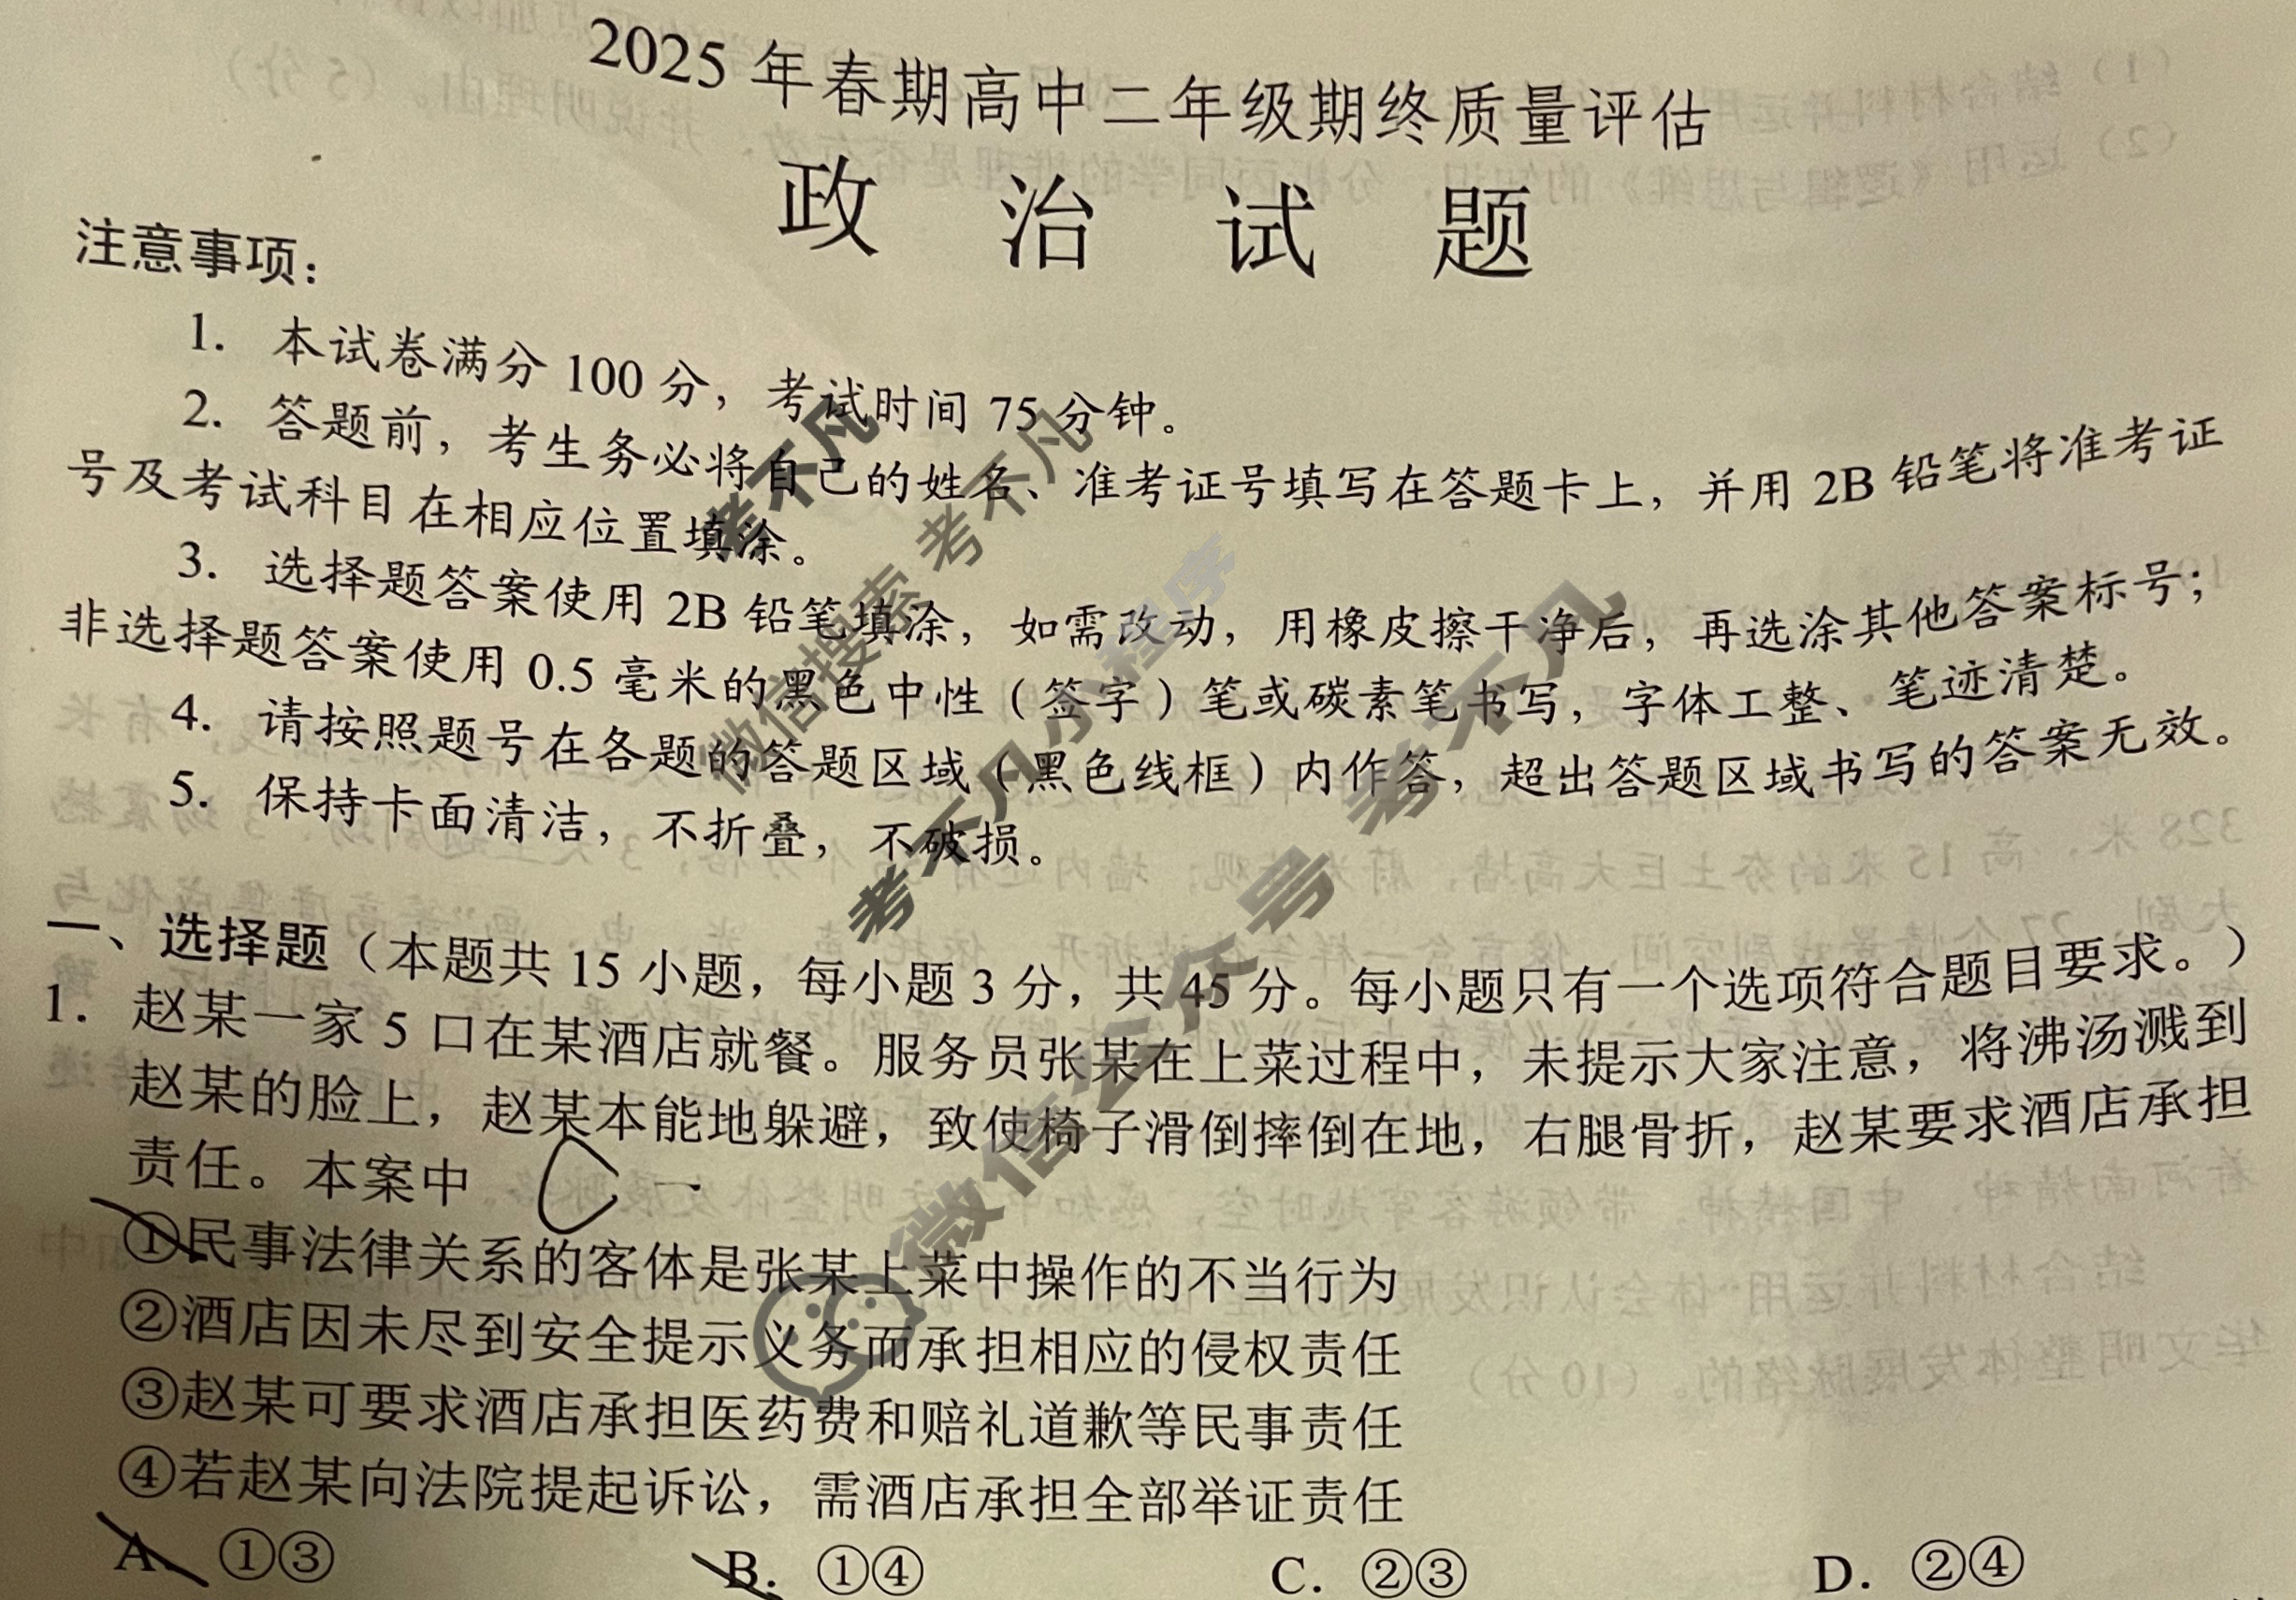 2025 年春期高中二年级期终质量评估
政 治 试 题
注意事项：
1. 本试卷满分 100 分，考试时间 75 分钟。
2. 答题前，考生务必将自己的姓名、准考证号填写在答题卡上，并用 2B 铅笔将准考证
号及考试科目在相应位置填涂。
3. 选择题答案使用 2B 铅笔填涂，如需改动，用橡皮擦干净后，再选涂其他答案标号；
非选择题答案使用 0.5 毫米的黑色中性（签字）笔或碳素笔书写，字体工整、笔迹清楚。
4. 请按照题号在各题的答题区域（黑色线框）内作答，超出答题区域书写的答案无效。
5. 保持卡面清洁，不折叠，不破损。
一、选择题（本题共 15 小题，每小题 3 分，共 45 分。每小题只有一个选项符合题目要求。）
1. 赵某一家 5 口在某酒店就餐。服务员张某在上菜过程中，未提示大家注意，将沸汤溅到
赵某的脸上，赵某本能地躲避，致使椅子滑倒摔倒在地，右腿骨折，赵某要求酒店承担
责任。本案中 C
①民事法律关系的客体是张某上菜中操作的不当行为
②酒店因未尽到安全提示义务而承担相应的侵权责任
③赵某可要求酒店承担医药费和赔礼道歉等民事责任
④若赵某向法院提起诉讼，需酒店承担全部举证责任
A. ①③ B. ①④ C. ②③ D. ②④
考不凡
微信搜索 考不凡
考不凡小程序
微信公众号 考不凡